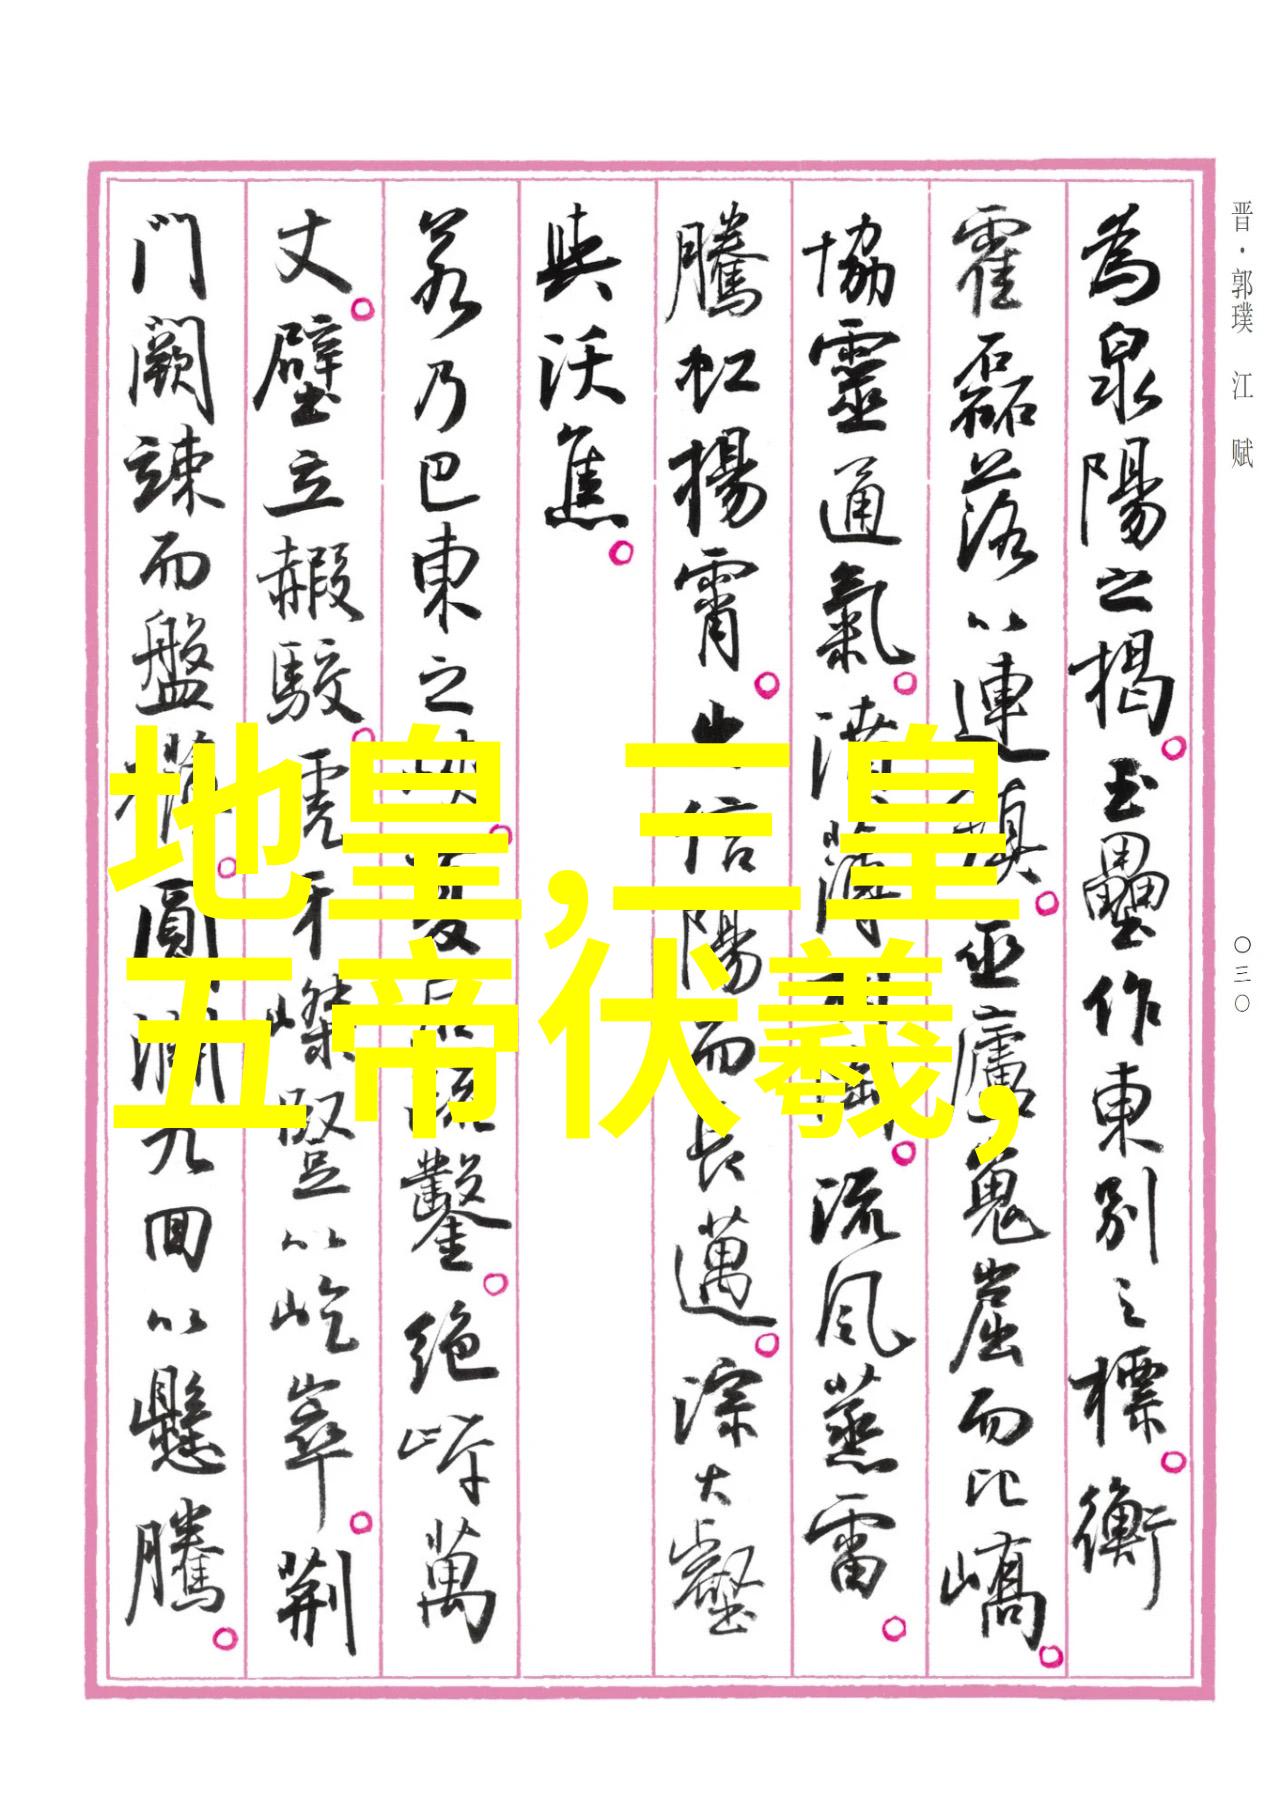 晋·郭璞 江 赋
〇三〇
為泉陽之揭。玉壘作東別之標。衡
霍磊落以連鎮。巫廬嵬崫而比嶠。
協靈通氣。濆薄相陶。流風蒸雷。
騰虹揚霄。出信陽而長邁。淙大壑
與沃焦。
若乃巴東之峽。夏后疏鑿。絶岸萬
丈。壁立赮駮。虎牙嵥豎以屹崒。荆
門闕竦而盤礴。圓淵九回以懸騰。
地皇,三皇
五帝伏羲,